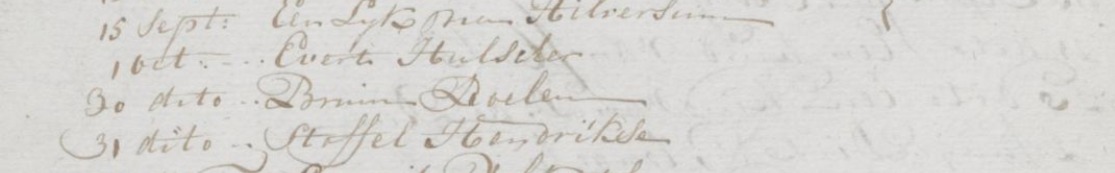 15 Sept: Een Lyk van Hilversum
1 oct. Evert Hulscher
30 dito Bruin Roelen
31 dito Stoffel Hendrikse